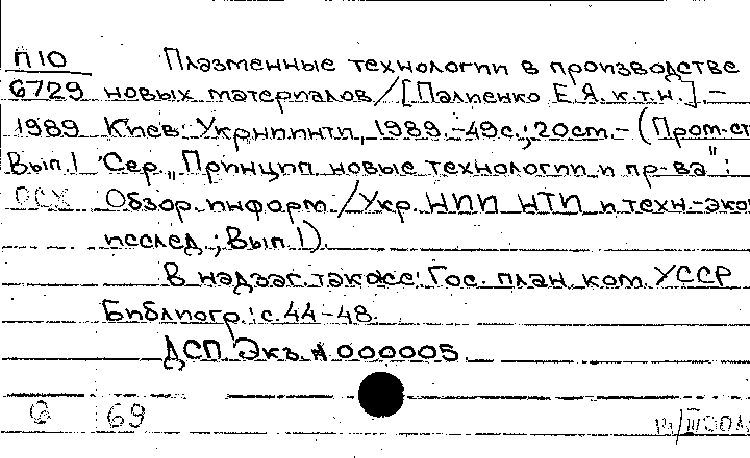 П10 Плазменные технологии в производстве
6729 новых материалов/[Палиенко Е.Я. к.т.н.].-
1989 Киев: Укрнпинти, 1989.-49с.; 20ст.- (Пром-ст
Вып.1 Сер. „Принцип. новые технологии и пр-ва":
ОСХ Обзор. информ./Укр. НПП НТП и техн.-эко
исслед.; Вып. 1).
В надзаг. также: Гос. план. ком. УССР
Библиогр.: с. 44-48.
ДСП Экз. № 000005
69